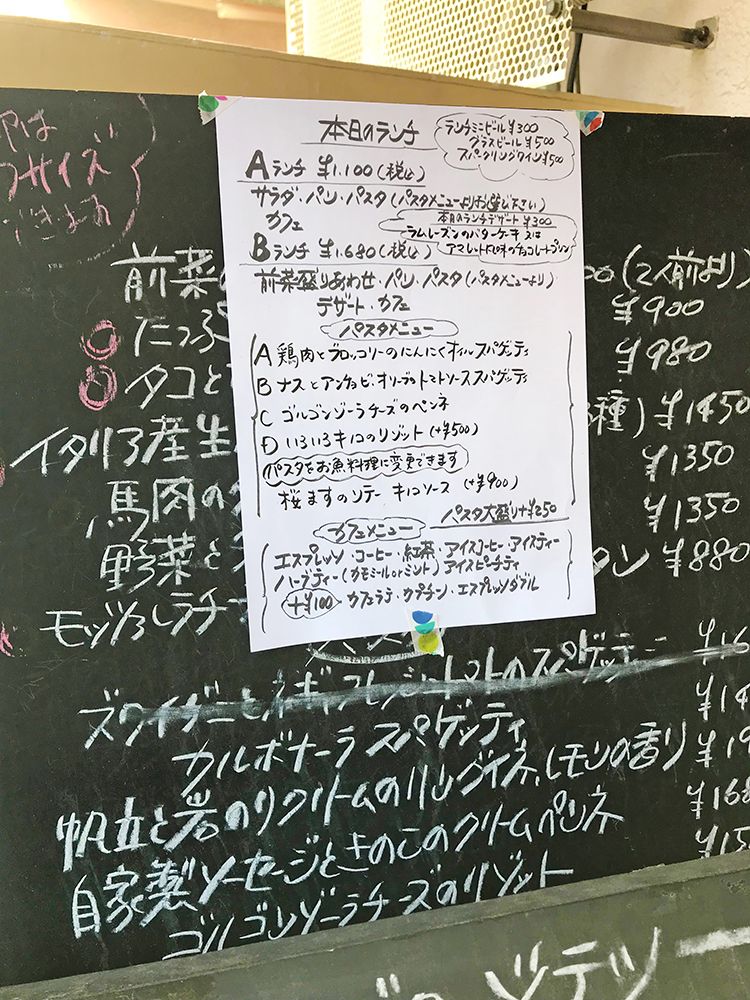 本日のランチ
ランチミニビール ¥300
グラスビール ¥500
スパークリングワイン ¥500
Aランチ ¥1.100(税込)
サラダ・パン・パスタ(パスタメニューよりお選び下さい)
カフェ
本日のランチデザート ¥300
ラムレーズンのバターケーキ 又は
アマレット風味のチョコレートプリン
Bランチ ¥1.680(税込)
前菜盛りあわせ・パン・パスタ(パスタメニューより)
デザート・カフェ
パスタメニュー
A 鶏肉とブロッコリーのにんにくオイルスパゲッティ
B ナスとアンチョビ・オリーブのトマトソーススパゲッティ
C ゴルゴンゾーラチーズのペンネ
D いろいろキノコのリゾット(+¥500)
パスタをお魚料理に変更できます
桜ますのソテー キノコソース (+¥900)
パスタ大盛り+¥250
カフェメニュー
エスプレッソ・コーヒー・紅茶・アイスコーヒー・アイスティー
ハーブティー(カモミールorミント)アイスピーチティ
+¥100 カフェラテ・カプチーノ・エスプレッソダブル
サイズ
できます
前菜の
(2人前より)
¥900
たっぷ
¥980
タコと
種) ¥1450
イタリア産生
¥1350
馬肉の
¥1350
野菜と
タン ¥880
モッツァレラチ
ズワイガニとネギ、フレッシュトマトのスパゲッティー ¥16
カルボナーラ スパゲッティ ¥14
帆立と岩のりクリームのリングイネ、レモンの香り ¥19
自家製ソーセージときのこのクリームペンネ ¥168
ゴルゴンゾーラチーズのリゾット ¥15